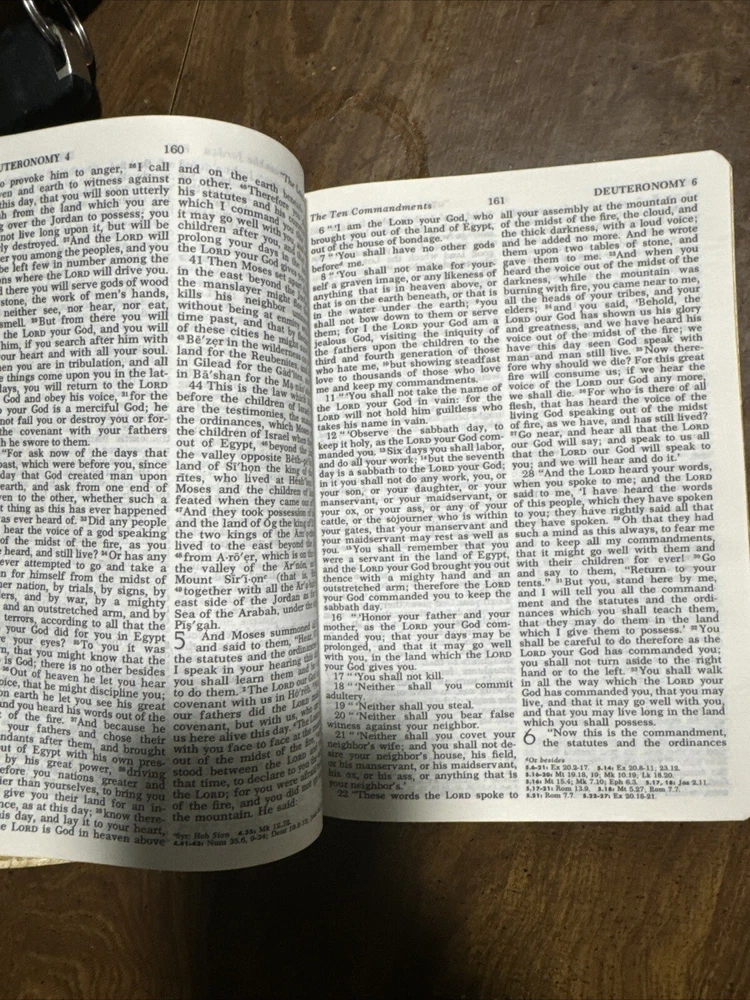 UTERONOMY 4
160
o provoke him to anger, ²⁶I call
ven and earth to witness against
this day, that you will soon utterly
sh from the land which you are
g over the Jordan to possess; you
not live long upon it, but will be
ly destroyed. ²⁷And the LORD will
er you among the peoples, and you
be left few in number among the
ons where the LORD will drive you.
d there you will serve gods of wood
stone, the work of men's hands,
neither see, nor hear, nor eat,
smell. ²⁹But from there you will
the LORD your God, and you will
him, if you search after him with
your heart and with all your soul.
en you are in tribulation, and all
e things come upon you in the lat-
ays, you will return to the LORD
God and obey his voice, ³¹for the
your God is a merciful God; he
not fail you or destroy you or for-
the covenant with your fathers
h he swore to them.
"For ask now of the days that
past, which were before you, since
day that God created man upon
earth, and ask from one end of
ven to the other, whether such a
t thing as this has ever happened
as ever heard of. ³³Did any people
hear the voice of a god speaking
of the midst of the fire, as you
heard, and still live? ³⁴Or has any
ever attempted to go and take a
n for himself from the midst of
her nation, by trials, by signs, by
ers, and by war, by a mighty
and an outstretched arm, and by
terrors, according to all that the
your God did for you in Egypt
e your eyes? ³⁵To you it was
n, that you might know that the
is God; there is no other besides
³⁶Out of heaven he let you hear
oice, that he might discipline you;
on earth he let you see his great
and you heard his words out of the
t of the fire. ³⁷And because he
your fathers and chose their
ndants after them, and brought
out of Egypt with his own pres-
by his great power, ³⁸driving
efore you nations greater and
er than yourselves, to bring you
give you their land for an in-
nce, as at this day; ³⁹know there-
is day, and lay it to your heart,
e LORD is God in heaven above
and on the earth
no other. ⁴⁰Therefore you
his statutes and his com
which I command you
it may go well with you
children after you, and
prolong your days in
the LORD your God gives
41 Then Moses set
in the east beyond the
the manslayer might
kills his neighbor
without being at enmity
time past, and that by
of these cities he might
⁴³Bē'zer in the wilderness on
land for the Reubenites,
in Gilead for the Gad'ites,
in Bā'shan for the Ma
44 This is the law which
before the children of Israel
are the testimonies, the
the ordinances, which Moses
the children of Israel when
out of Egypt, ⁴⁶beyond the
the valley opposite Bēth-pē
land of Sī'hon the king of
rites, who lived at Hĕsh'
Moses and the children of
feated when they came out
⁴⁷And they took possession of
and the land of Ōg the king of
the two kings of the Am'or
lived to the east beyond the
⁴⁸from A-rō'er, which is on the
the valley of the Ar'non,
Mount Sir'i-onᵉ (that is,
⁴⁹together with all the Ar'a
east side of the Jordan as
Sea of the Arabah, under the
Pis'gah.
5 And Moses summoned
and said to them, "Hear,
the statutes and the ordinan
I speak in your hearing this
you shall learn them and
to do them. ²The LORD our
covenant with us in Hō'reb.
our fathers did the LORD
covenant, but with us, who
us here alive this day. ⁴The LORD
with you face to face at the
out of the midst of the fire,
stood between the LORD
that time, to declare to you
the LORD; for you were afraid
of the fire, and you did not
the mountain. He said:
ᵉSyr: Heb Sion 4.35: Mk 12.32.
4.41-43: Num 35.6, 9-34; Deut 19.2-13;
The Ten Commandments
161
DEUTERONOMY 6
6 " 'I am the LORD your God, who
brought you out of the land of Egypt,
out of the house of bondage.
7 " 'You shall have no other gods
beforeᵍ me.
8 " 'You shall not make for your-
self a graven image, or any likeness of
anything that is in heaven above, or
that is on the earth beneath, or that is
in the water under the earth; ⁹you
shall not bow down to them or serve
them; for I the LORD your God am a
jealous God, visiting the iniquity of
the fathers upon the children to the
third and fourth generation of those
who hate me, ¹⁰but showing steadfast
love to thousands of those who love
me and keep my commandments.
11 " 'You shall not take the name of
the LORD your God in vain: for the
LORD will not hold him guiltless who
takes his name in vain.
12 " 'Observe the sabbath day, to
keep it holy, as the LORD your God com-
manded you. ¹³Six days you shall labor,
and do all your work; ¹⁴but the seventh
day is a sabbath to the LORD your God;
in it you shall not do any work, you, or
your son, or your daughter, or your
manservant, or your maidservant, or
your ox, or your ass, or any of your
cattle, or the sojourner who is within
your gates, that your manservant and
your maidservant may rest as well as
you. ¹⁵You shall remember that you
were a servant in the land of Egypt,
and the LORD your God brought you out
thence with a mighty hand and an
outstretched arm; therefore the LORD
your God commanded you to keep the
sabbath day.
16 " 'Honor your father and your
mother, as the LORD your God com-
manded you; that your days may be
prolonged, and that it may go well
with you, in the land which the LORD
your God gives you.
17 " 'You shall not kill.
18 " 'Neither shall you commit
adultery.
19 " 'Neither shall you steal.
20 " 'Neither shall you bear false
witness against your neighbor.
21 " 'Neither shall you covet your
neighbor's wife; and you shall not de-
sire your neighbor's house, his field,
or his manservant, or his maidservant,
his ox, or his ass, or anything that is
your neighbor's.'
22 "These words the LORD spoke to
all your assembly at the mountain out
of the midst of the fire, the cloud, and
the thick darkness, with a loud voice;
and he added no more. And he wrote
them upon two tables of stone, and
gave them to me. ²³And when you
heard the voice out of the midst of the
darkness, while the mountain was
burning with fire, you came near to me,
all the heads of your tribes, and your
elders; ²⁴and you said, 'Behold, the
LORD our God has shown us his glory
and greatness, and we have heard his
voice out of the midst of the fire; we
have this day seen God speak with
man and man still live. ²⁵Now there-
fore why should we die? For this great
fire will consume us; if we hear the
voice of the LORD our God any more,
we shall die. ²⁶For who is there of all
flesh, that has heard the voice of the
living God speaking out of the midst
of fire, as we have, and has still lived?
²⁷Go near, and hear all that the LORD
our God will say; and speak to us all
that the LORD our God will speak to
you; and we will hear and do it.'
28 "And the LORD heard your words,
when you spoke to me; and the LORD
said to me, 'I have heard the words
of this people, which they have spoken
to you; they have rightly said all that
they have spoken. ²⁹Oh that they had
such a mind as this always, to fear me
and to keep all my commandments,
that it might go well with them and
with their children for ever! ³⁰Go
and say to them, "Return to your
tents." ³¹But you, stand here by me,
and I will tell you all the command-
ment and the statutes and the ordi-
nances which you shall teach them,
that they may do them in the land
which I give them to possess.' ³²You
shall be careful to do therefore as the
LORD your God has commanded you;
you shall not turn aside to the right
hand or to the left. ³³You shall walk
in all the way which the LORD your
God has commanded you, that you may
live, and that it may go well with you,
and that you may live long in the land
which you shall possess.
6 "Now this is the commandment,
the statutes and the ordinances
ᵍOr besides
5.6-21: Ex 20.2-17. 5.14: Ex 20.8-11; 23.12.
5.16-20: Mt 19.18, 19; Mk 10.19; Lk 18.20.
5.16: Mt 15.4; Mk 7.10; Eph 6.3. 5.17, 18: Jas 2.11.
5.17-21: Rom 13.9. 5.18: Mt 5.27; Rom 7.7.
5.21: Rom 7.7. 5.22-27: Ex 20.18-21.